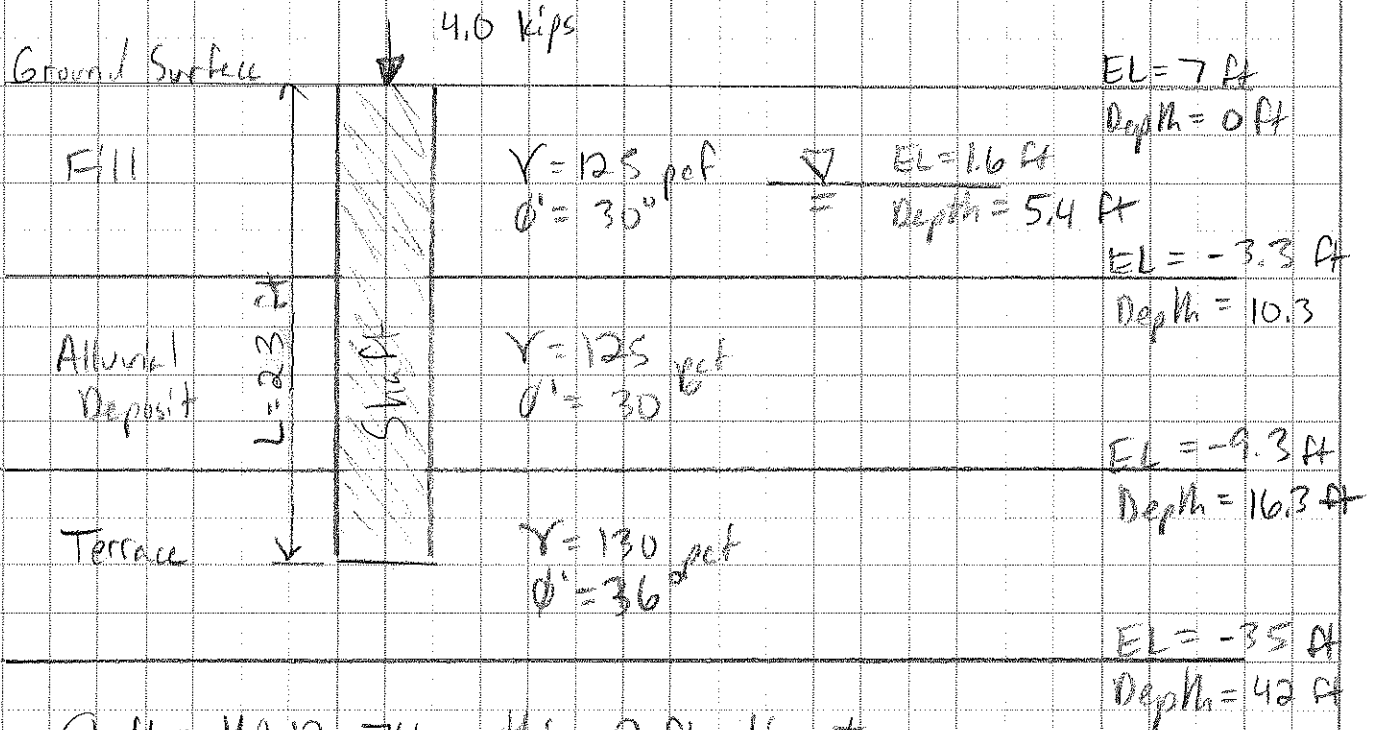 4.0 kips
Ground Surface
EL = 7 ft
Depth = 0 ft
Fill
γ = 125 pcf
ϕ' = 30°
EL = 1.6 ft
Depth = 5.4 ft
EL = -3.3 ft
Depth = 10.3
Alluvial
Deposit
L = 23 ft
Shaft
γ = 125 pcf
ϕ' = 30
EL = -9.3 ft
Depth = 16.3 ft
Terrace
γ = 130 pcf
ϕ' = 36
EL = -35 ft
Depth = 42 ft